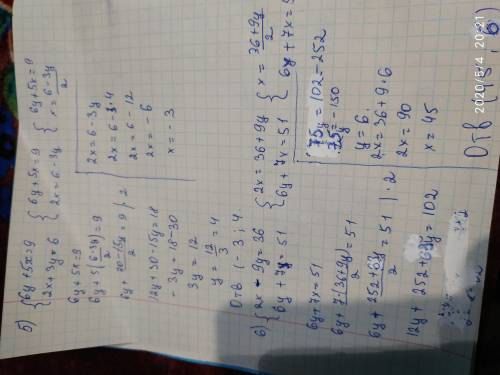 5) {6y+5x=9 {6y+5x=9 {6y+5x=9
2x+3y=6 2x=6-3y x=6-3y/2
6y+5x=9
6y+5(6-3y)/2=9
6y+30-15y/2=9 |·2
12y+30-15y=18
-3y=18-30
3y=12
y=12/3=4
2x=6-3y
2x=6-3·4
2x=6-12
2x=-6
x=-3
Отв (-3; 4
6) {2x-9y=36 {2x=36+9y {x=36+9y/2
6y+7x=51 6y+7x=51 6y+7x=5
6y+7x=51
6y+7(36+9y)/2=51
6y+252+63y/2=51 |·2
12y+252+63y=102
75y=102-252
75y=-150
y=6
2x=36+9·6
2x=90
x=45
Отв
2020/5/4 20:21